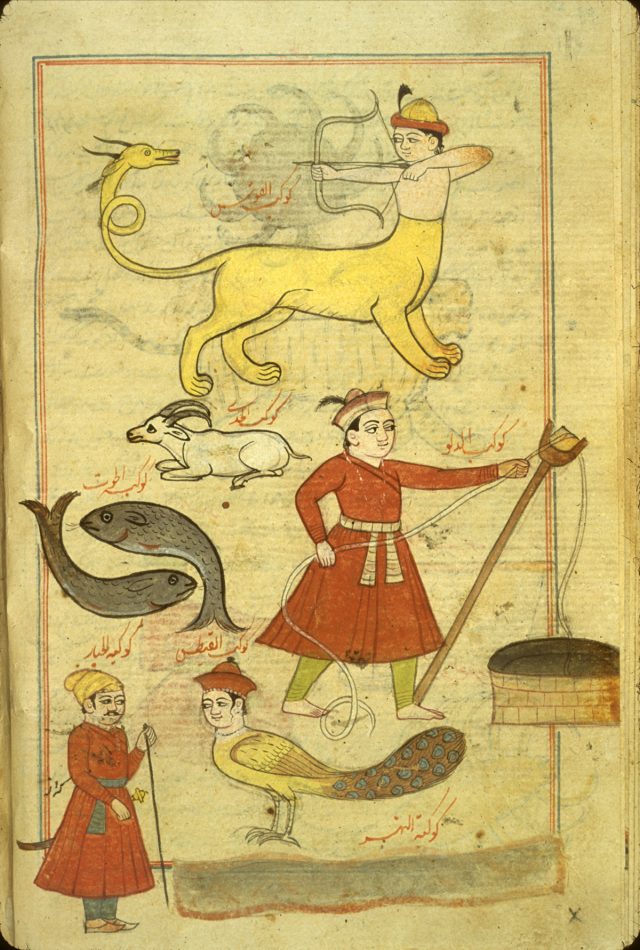 كوكب القوس
كوكب الجدي
كوكب الدلو
كوكبة الحوت
كوكب القيطس
كوكبة الجبار
كوكبة النهر